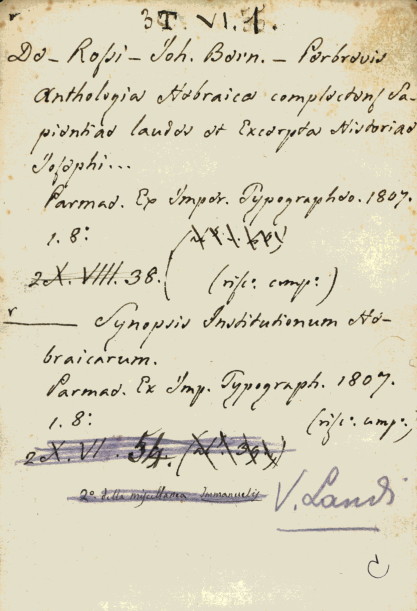 3T. VI. 1.
De-Rossi-Joh. Bern. - Perbrevis
Anthologia Hebraica complectens Sa-
pientiae laudes et Excerpta Historiae
Josephi...
Parmae. Ex Imper. Typographeo. 1807.
1. 8:
2 X. VIII. 38. (risc: cmp:)
Synopsis Institutionum He-
braicarum.
Parmae. Ex Imp. Typograph. 1807.
1. 8: (risc: cmp:)
2 X. VI. 54.
2º della miscellanea Immanuelis
V. Landi